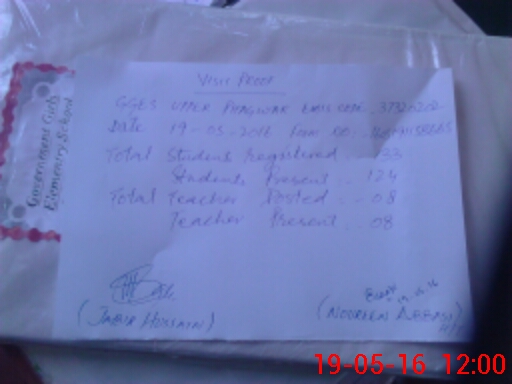 Government Girls
Elementary School
VISIT PROOF
GGES UPPER PHAGWAR EMIS CODE.
Date 19-05-2016 Form NO:
Total Students Registered. 133
Students Present. 124
Total Teacher Posted. - 08
Teacher Present. 08
(JABIR HUSSAIN)
(NOOREEN ABBASI)
19-05-16 12:00